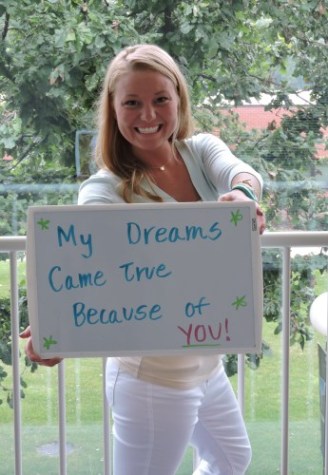 My Dreams
Came True
Because of
YOU!